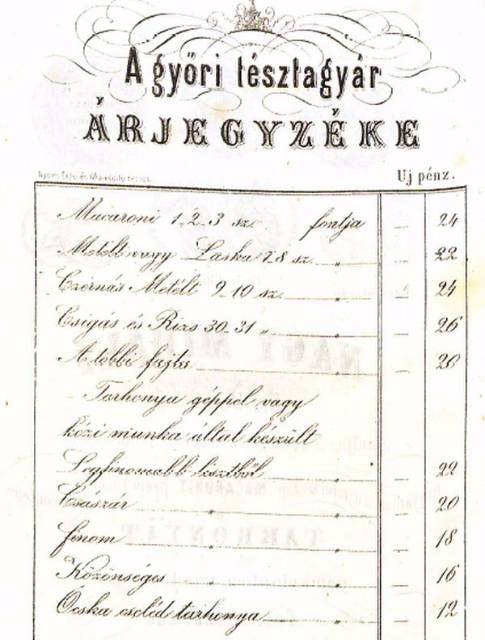 A győri tésztagyár
ÁRJEGYZÉKE
Uj pénz.
Macaroni 1. 2. 3 sz. fontja — 24
Metélt vagy Laska 7-8 sz. „ — 22
Czérnás Metélt 9-10 sz. „ — 24
Csigás és Rizs 30. 31 „ „ — 26
A többi fajta „ — 20
Tarhonya géppel vagy
kézi munka által készült
Legfinomabb lisztből „ — 22
Császár „ „ — 20
finom „ „ — 18
Közönséges „ — 16
Ócska cseléd tarhonya „ — 12